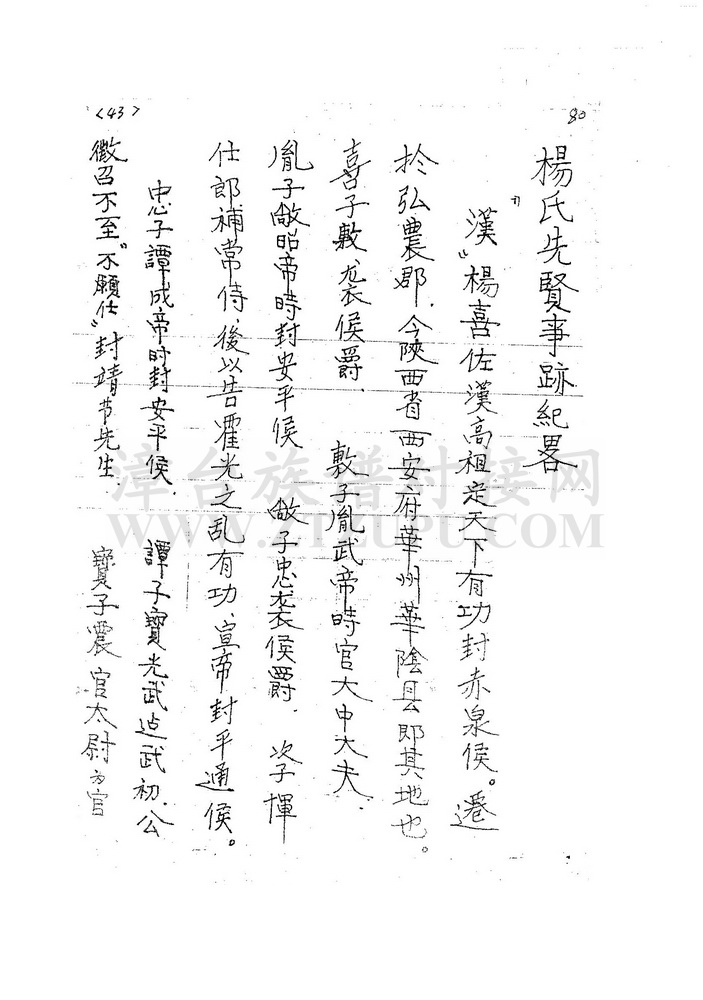 80
楊氏先賢事跡紀畧
漢楊喜佐漢高祖定天下有功封赤泉侯。遷
於弘農郡.今陝西省西安府華州華陰县即其地也。
喜子敷、袭侯爵. 敷子胤武帝時官大中大夫.
胤子敞昭帝時封安平侯 敞子忠袭侯爵. 次子惲
仕郎補常侍,後以告霍光之乱有功、宣帝封平通侯。
忠子譚成帝时封安平侯. 譚子寶光武边武初.公
徵召不至"不願仕"封靖节先生. 寶子震官太尉为官
<43>
漳台族谱对接网
WWW.ZTZUPU.COM